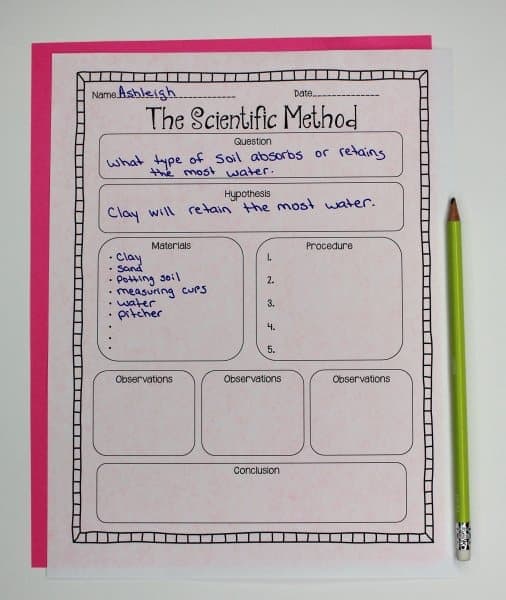 Name Ashleigh Date
The Scientific Method
Question
What type of soil absorbs or retains
the most water.
Hypothesis
Clay will retain the most water.
Materials
· Clay
· Sand
· Potting soil
· measuring cups
· water
· pitcher
·
·
·
Procedure
1.
2.
3.
4.
5.
Observations
Observations
Observations
Conclusion